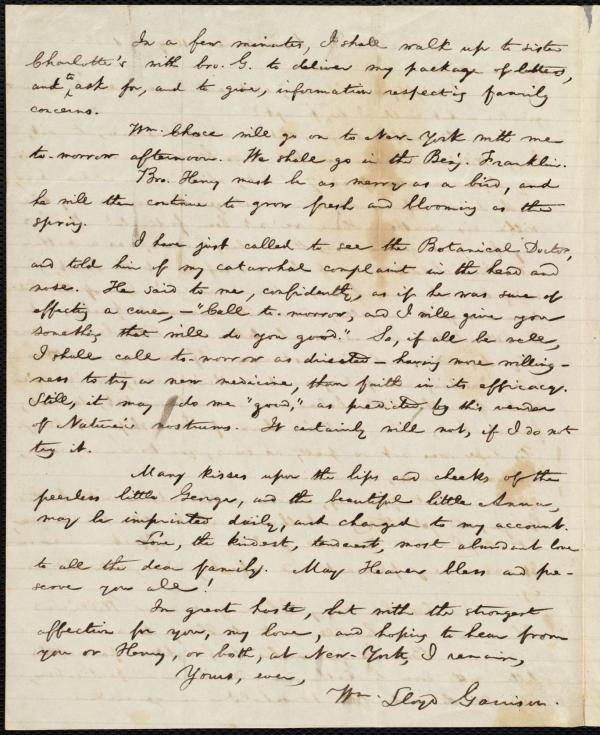 In a few minutes, I shall walk up to sister
Charlotte's with bro. G. to deliver my package of letters,
and to ask for, and to give, information respecting family
concerns.
Wm. Chace will go on to New-York with me
to-morrow afternoon. We shall go in the Benj. Franklin.
Bro. Henry must be as merry as a bird, and
he will then continue to grow fresh and blooming as the
spring.
I have just called to see the Botanical Doctor,
and told him of my catarrhal complaint in the head and
nose. He said to me, confidently, as if he was sure of
effecting a cure, — "Call to-morrow, and I will give you
something that will do you good." So, if all be well,
I shall call to-morrow as directed — having more willing-
ness to try a new medicine, than faith in its efficacy.
Still, it may do me "good," as predicted by this vender
of Nature's nostrums. It certainly will not, if I do not
try it.
Many kisses upon the lips and cheeks of the
peerless little George, and the beautiful little Anna,
may be imprinted daily, and charged to my account.
Love, the kindest, tenderest, most abundant love
to all the dear family. May Heaven bless and pre-
serve you all!
In great haste, but with the strongest
affection for you, my love, and hoping to hear from
you or Henry, or both, at New-York, I remain,
Yours, ever,
Wm. Lloyd Garrison.